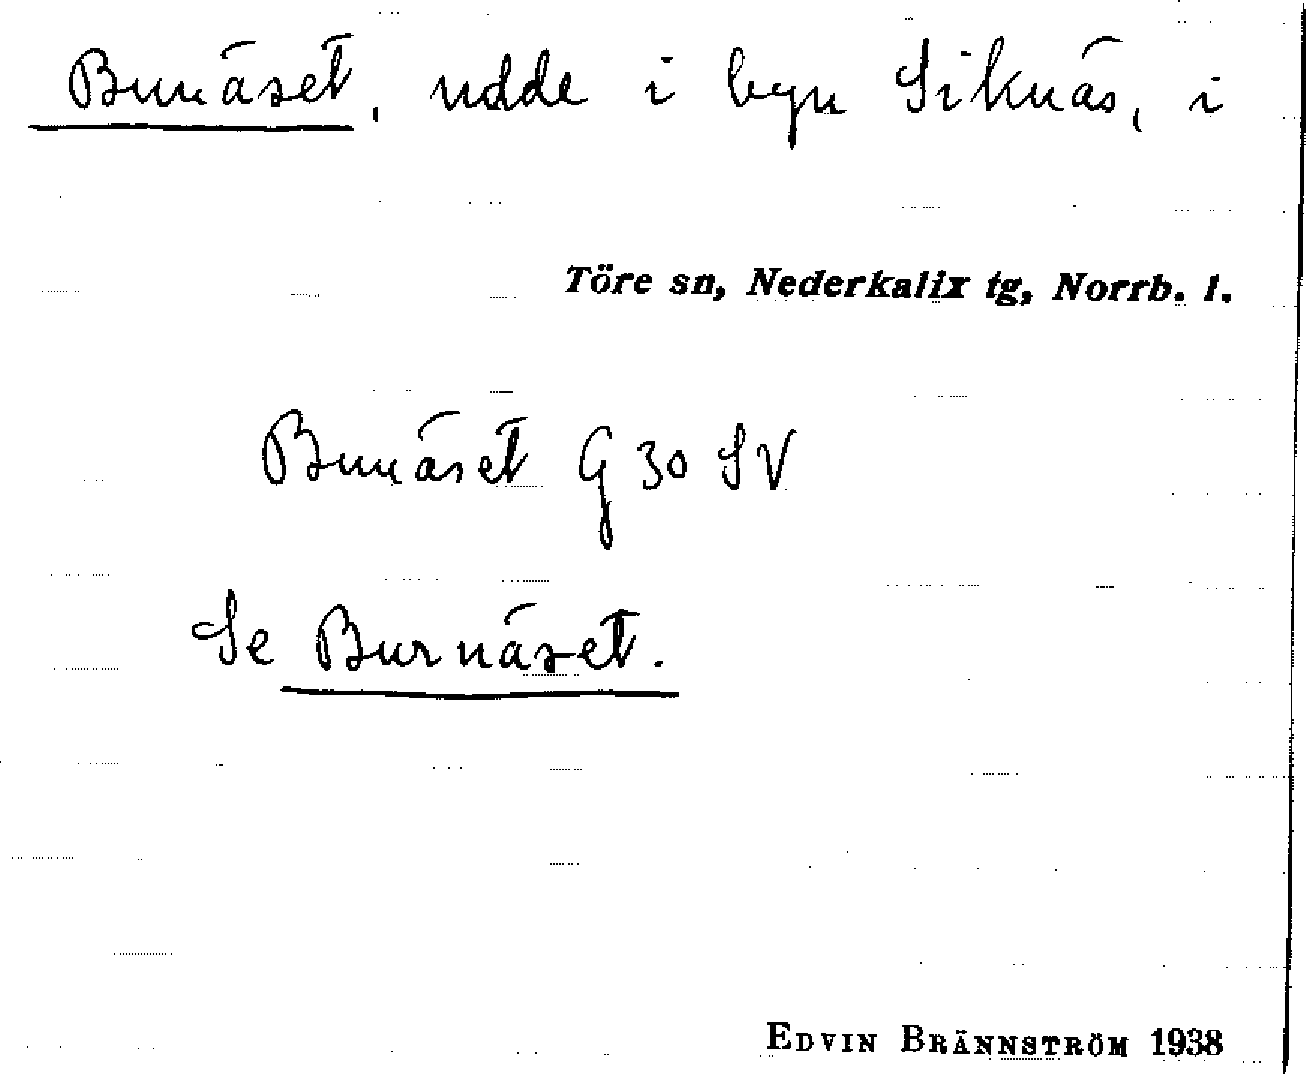 Bunäset, udde i byn Siknäs, i
Töre sn, Nederkalix tg, Norrb. l.
Bunäset G 30 SV
Se Burnäset.
EDVIN BRÄNNSTRÖM 1938